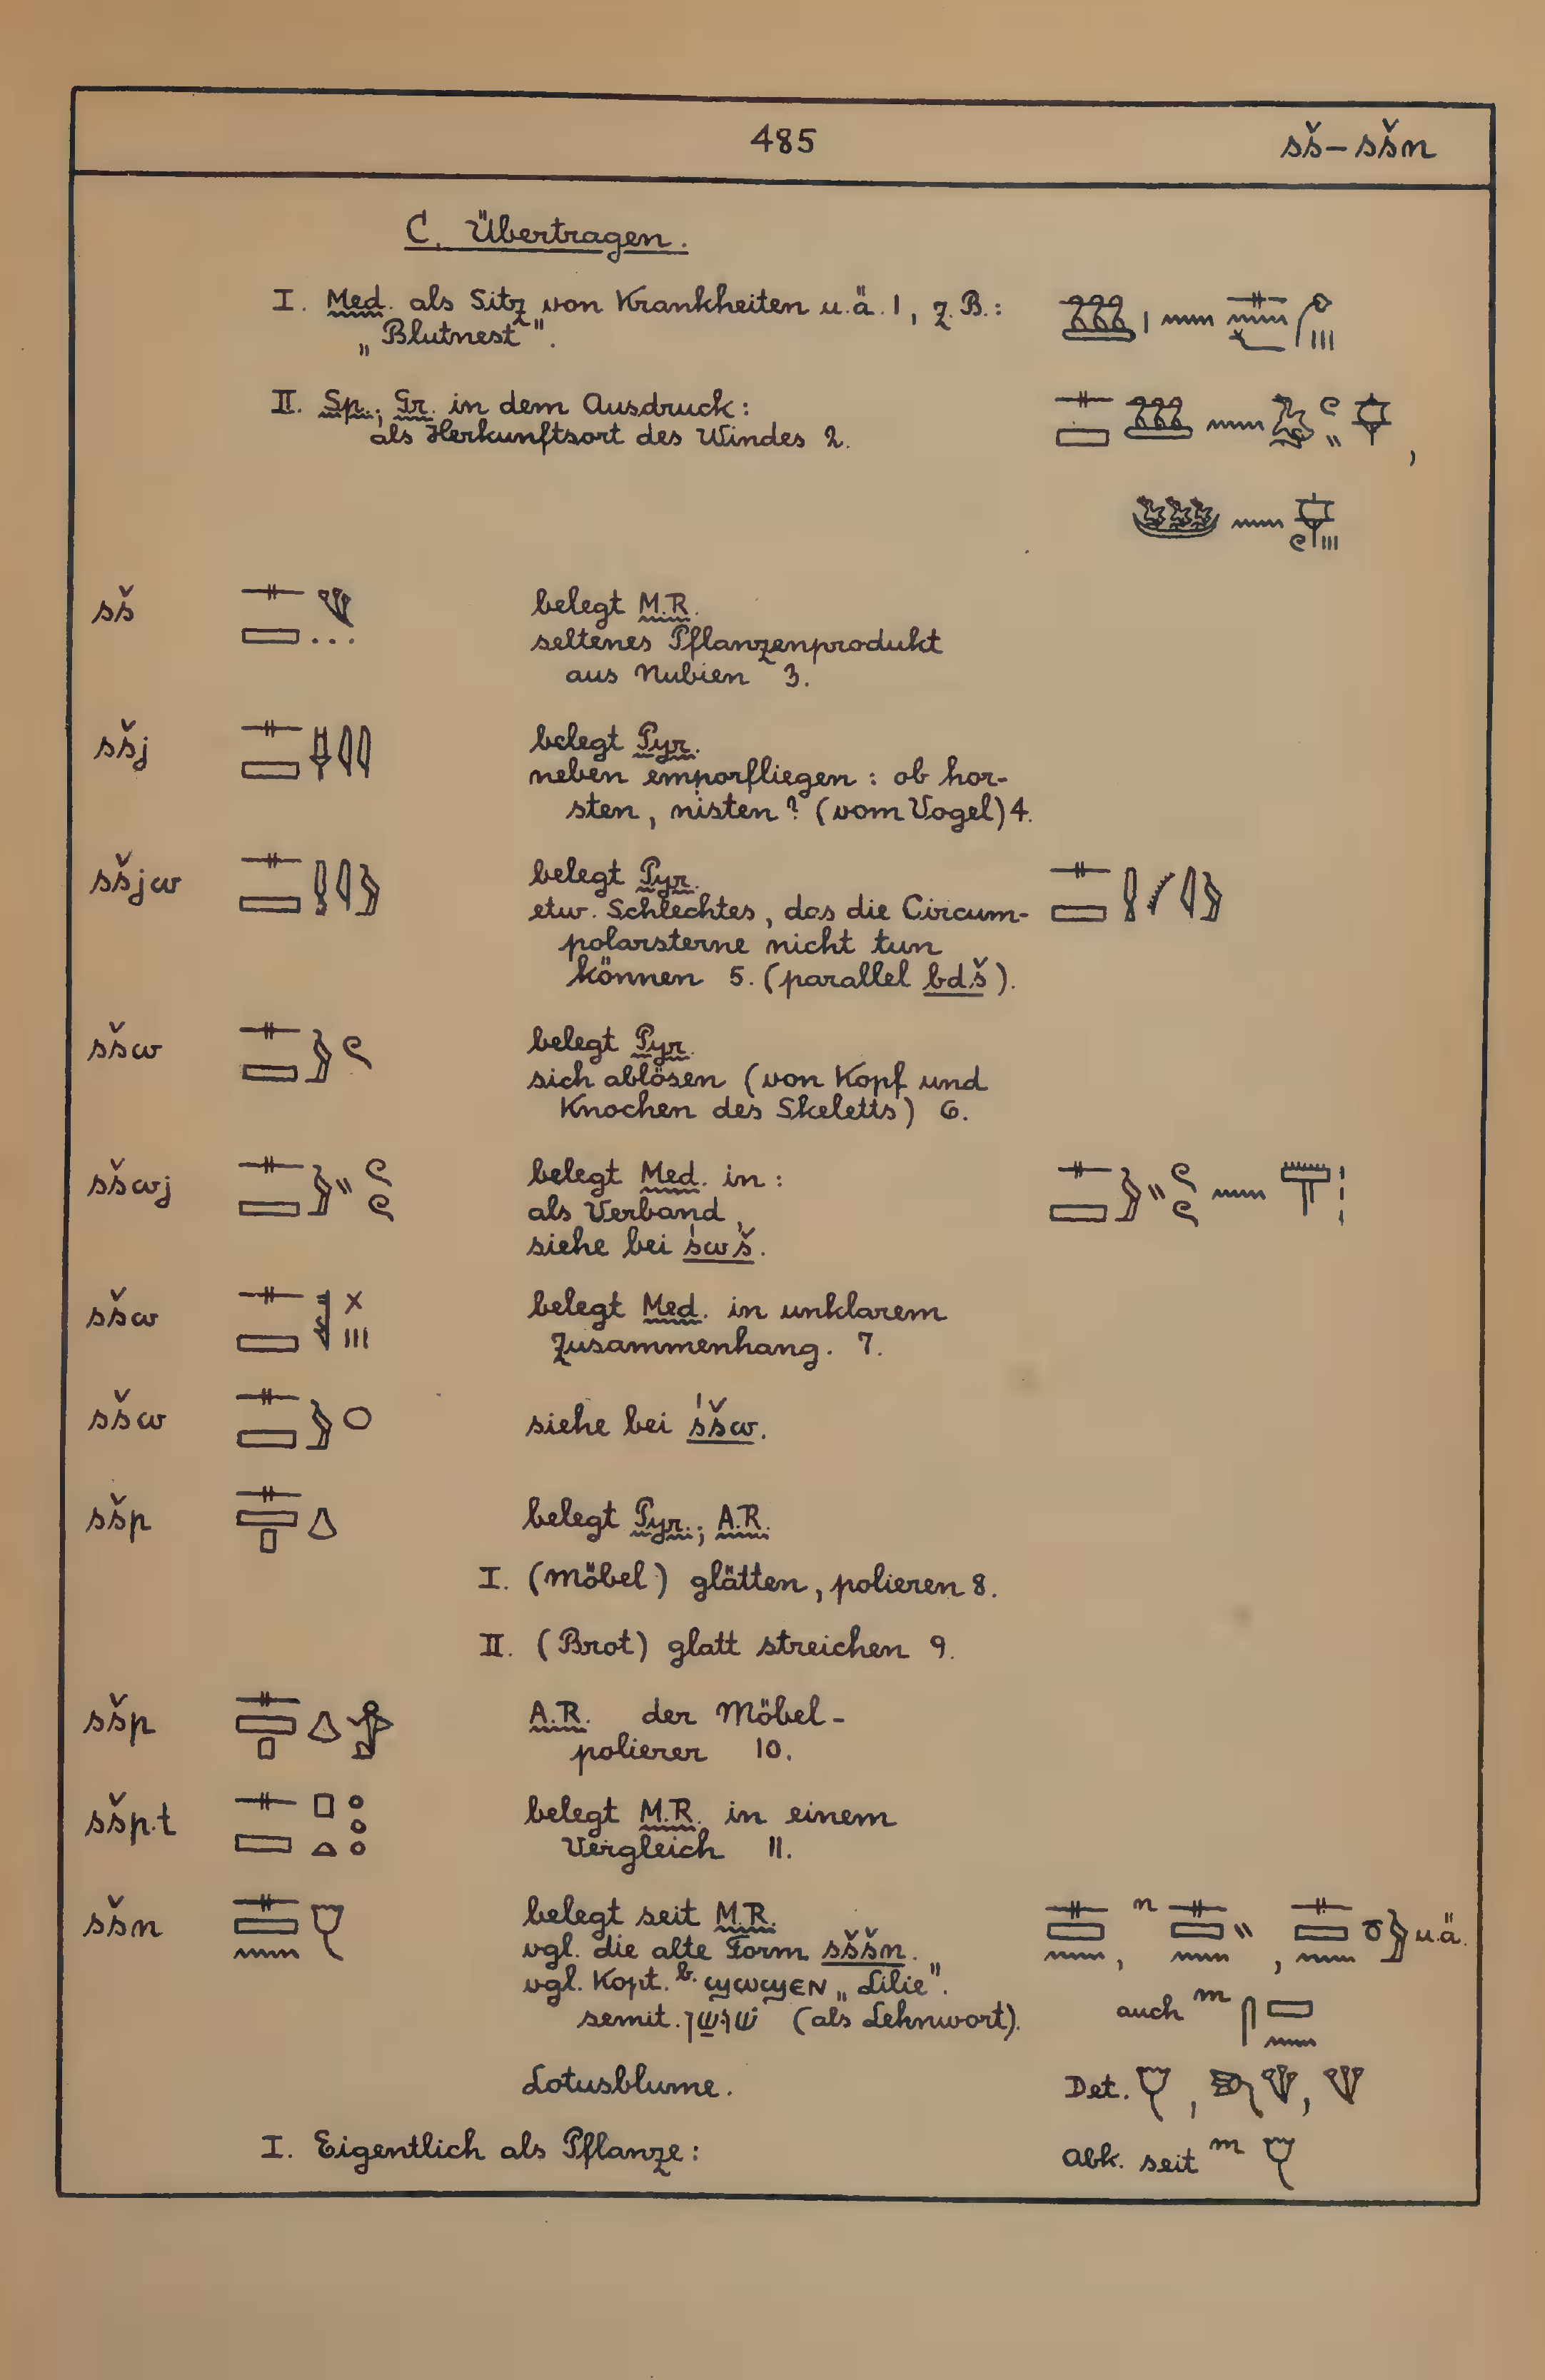 485
sš – sšn
C. Übertragen.
I. Med. als Sitz von Krankheiten u.ä. 1, z.B.:
„Blutnest".
II. Sp.; Gr. in dem Ausdruck:
als Herkunftsort des Windes 2.
sš belegt M.R.
seltenes Pflanzenprodukt
aus Nubien 3.
sšj belegt Pyr.
neben emporfliegen: ob hor-
sten, nisten? (vom Vogel) 4.
sšjw belegt Pyr.
etw. Schlechtes, das die Circum-
polarsterne nicht tun
können 5. (parallel bdš).
sšw belegt Pyr.
sich ablösen (von Kopf und
Knochen des Skeletts) 6.
sšwj belegt Med. in:
als Verband,
siehe bei śwš.
sšw belegt Med. in unklarem
Zusammenhang. 7.
sšw siehe bei śšw.
sšp belegt Pyr.; A.R.
I. (Möbel) glätten, polieren 8.
II. (Brot) glatt streichen 9.
sšp A.R. der Möbel-
polierer 10.
sšp.t belegt M.R. in einem
Vergleich 11.
sšn belegt seit M.R. n u.ä.
vgl. die alte Form sššn.
vgl. Kopt. b. ϣⲱϣⲉⲛ „Lilie".
semit. שׁוֹשַׁן (als Lehnwort). auch m
Lotusblume. Det.
I. Eigentlich als Pflanze: Abk. seit m